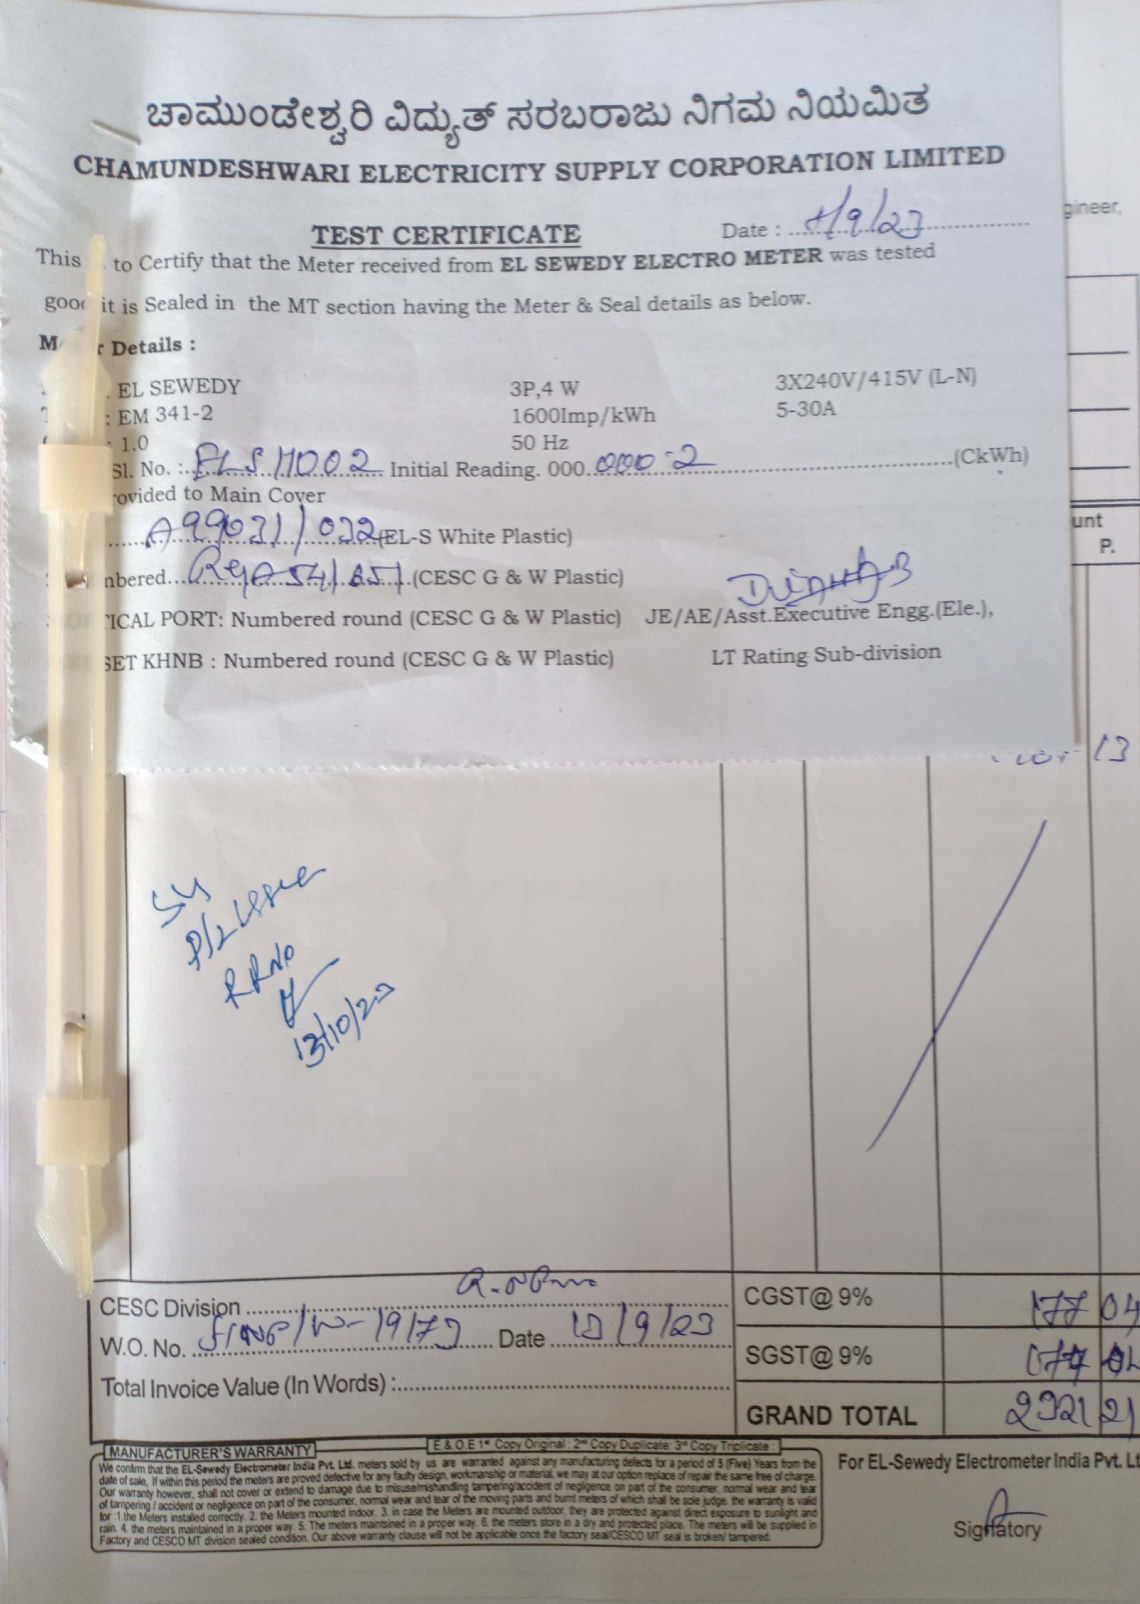 ಚಾಮುಂಡೇಶ್ವರಿ ವಿದ್ಯುತ್ ಸರಬರಾಜು ನಿಗಮ ನಿಯಮಿತ
CHAMUNDESHWARI ELECTRICITY SUPPLY CORPORATION LIMITED
gineer,
TEST CERTIFICATE Date : /9/23
This to Certify that the Meter received from EL SEWEDY ELECTRO METER was tested
good it is Sealed in the MT section having the Meter & Seal details as below.
Details :
EL SEWEDY 3P,4 W 3X240V/415V (L-N)
: EM 341-2 1600Imp/kWh 5-30A
: 1.0 50 Hz
Sl. No. : ELS 11002 Initial Reading. 000 000.2 (CkWh)
rovided to Main Cover
unt
P.
A99031/032 (EL-S White Plastic)
nbered... (CESC G & W Plastic)
ICAL PORT: Numbered round (CESC G & W Plastic) JE/AE/Asst.Executive Engg.(Ele.),
SET KHNB : Numbered round (CESC G & W Plastic) LT Rating Sub-division
13
RRNO
13/10/23
CESC Division
W.O. No. Date 12/9/23
Total Invoice Value (In Words) :
CGST@ 9% 177 04
SGST@ 9%
GRAND TOTAL 2321 21
MANUFACTURER'S WARRANTY E & O.E 1st Copy Original : 2nd Copy Duplicate: 3rd Copy Triplicate :
We confirm that the EL-Sewedy Electrometer India Pvt. Ltd. meters sold by us are warranted against any manufacturing defects for a period of 5 (Five) Years from the
date of sale, If within this period the meters are proved defective for any faulty design, workmanship or material, we may at our option replace of repair the same free of charge.
Our warranty however, shall not cover or extend to damage due to misuse/mishandling tampering/accident of negligence on part of the consumer, normal wear and tear
of tampering / accident or negligence on part of the consumer, normal wear and tear of the moving parts and burnt meters of which shall be sole judge. the warranty is valid
for :1.the Meters installed correctly. 2. the Meters mounted indoor. 3. in case the Meters are mounted outdoor, they are protected against direct exposure to sunlight and
rain. 4. the meters maintained in a proper way. 5. The meters maintained in a proper way. 6. the meters store in a dry and protected place. The meters will be supplied in
Factory and CESCO MT division sealed condition. Our above warranty clause will not be applicable once the factory seal/CESCO MT seal is broken/ tampered.
For EL-Sewedy Electrometer India Pvt. Lt
Signatory